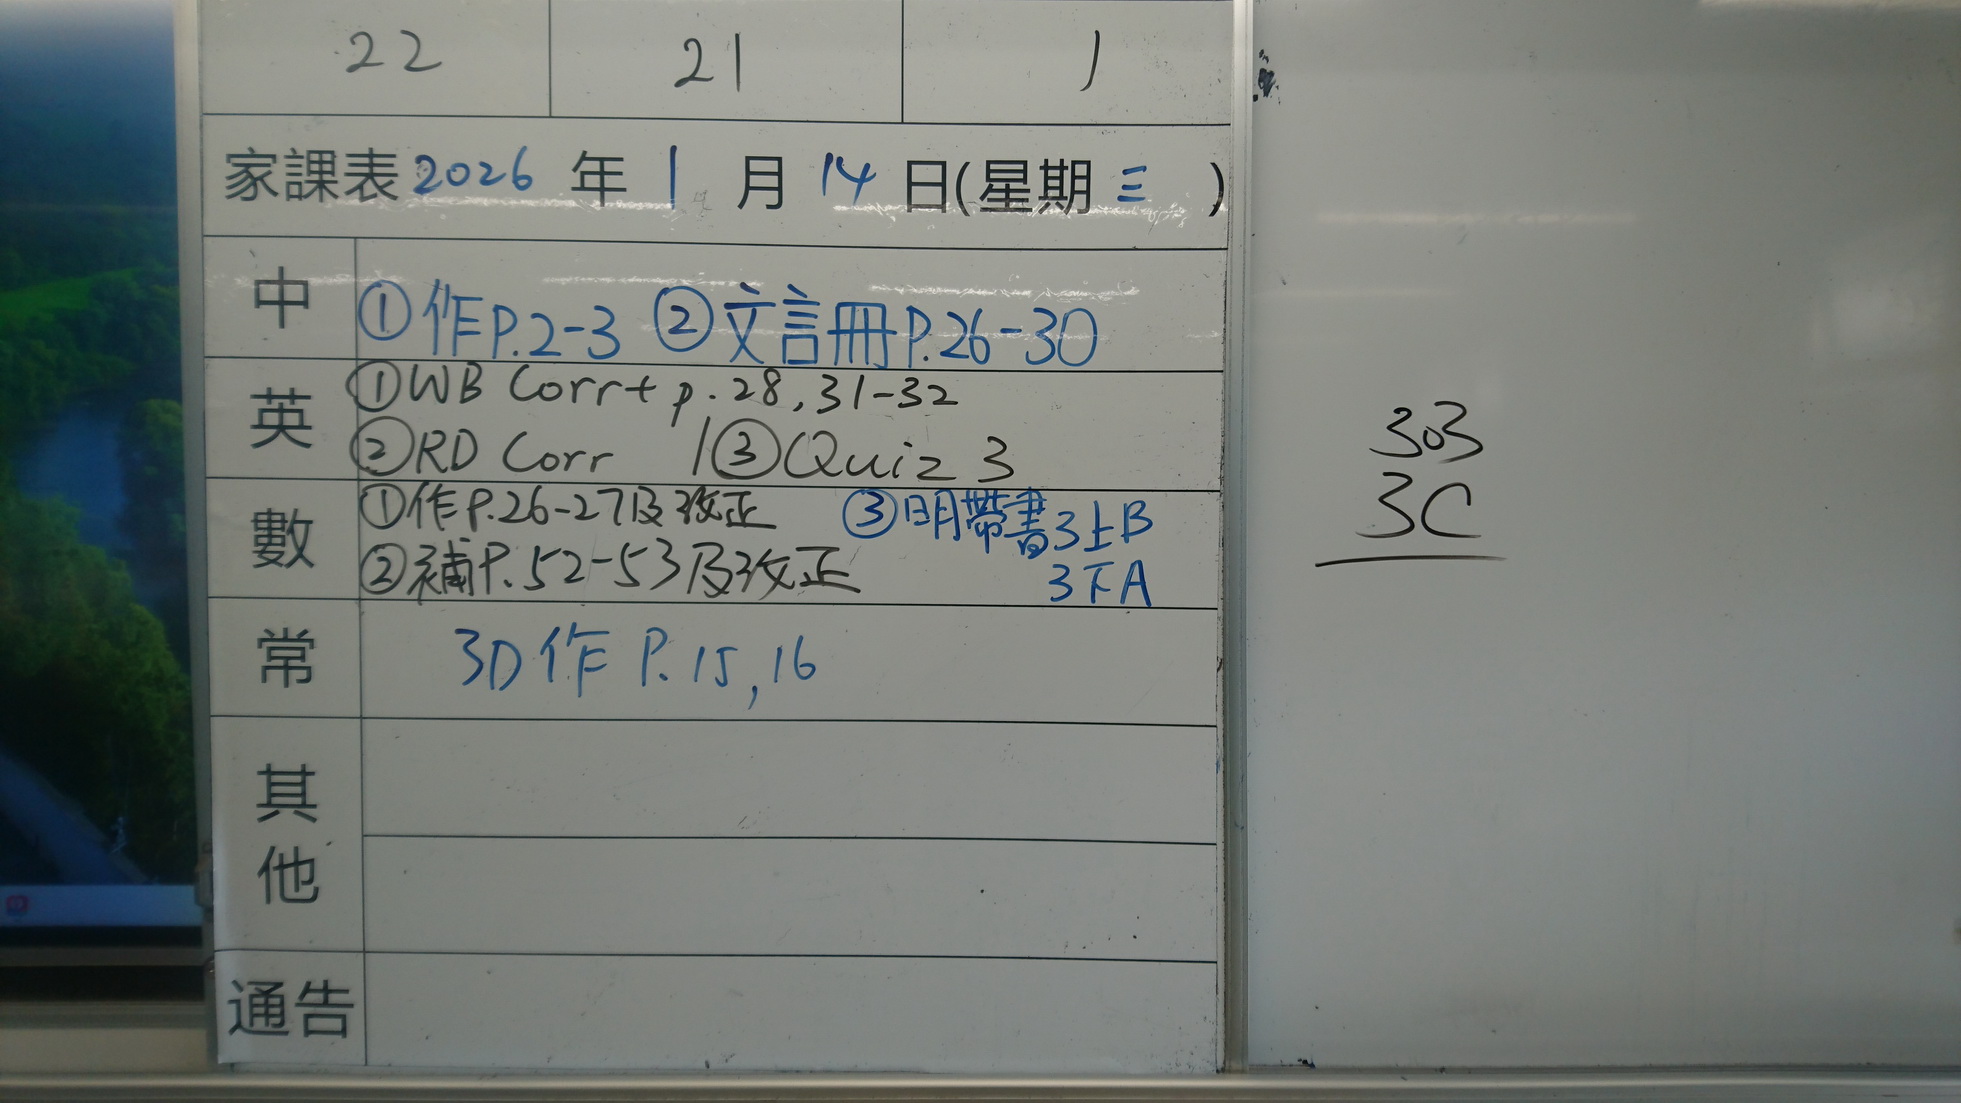 22 21 1
家課表 2026 年 1 月 14 日(星期三)
中 ①作P.2-3 ②文言冊P.26-30
英 ①WB Corr+ p.28,31-32
②RD Corr /③Quiz 3
數 ①作P.26-27及改正 ③明帶書3上B
②補P.52-53及改正 3下A
常 3D作 P.15,16
其他
通告
303
3C